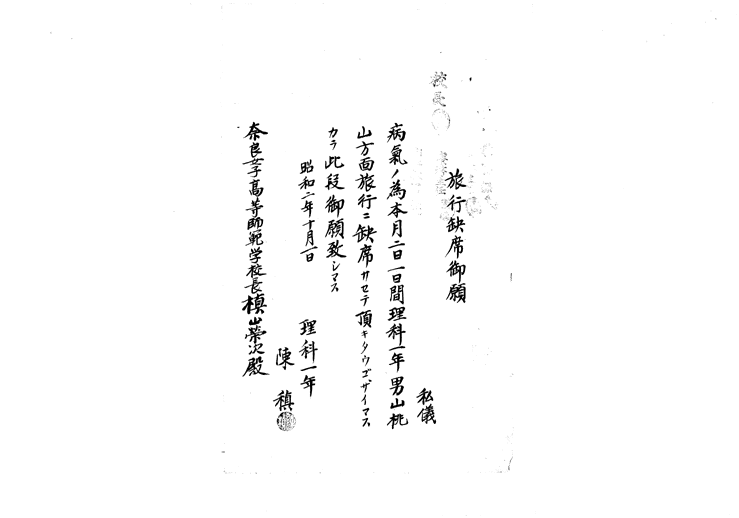 校長
旅行缺席御願
私儀
病氣ノ為本月二日一日間理科一年男山桃
山方面旅行ニ缺席サセテ頂キタウゴザイマス
カラ此段御願致シマス
昭和二年十月一日
理科一年
陳稹
奈良女子高等師範学校長槙山榮次殿